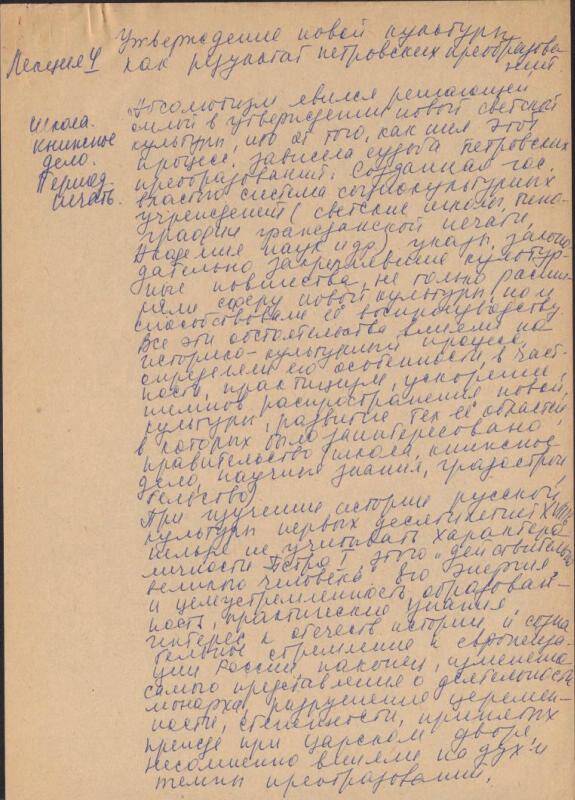 Утверждение новой культуры
Лекция 4 как результат петровских преобразова-
ний
Школа.
книжное
дело.
Период.
печать.
Абсолютизм явился решающей
силой в утверждении новой светской
культуры, ибо от того, как шел этот
процесс, зависела судьба петровских
преобразований. Созданная гос.
властью система социокультурных
учреждений (светские школы, типо-
графии гражданской печати,
Академия наук и др.) указы, законо-
дательно закреплявшие культур-
ные новшества, не только расши-
ряли сферу новой культуры, но и
способствовали её воспроизводству
Все эти обстоятельства влияли на
историко-культурный процесс,
определяли его особенности, в част-
ности, практицизм, ускорение
темпов распространения новой
культуры, развитие тех её областей,
в которых было заинтересовано
правительство (школа, книжное
дело, научные знания, градострои
тельство)
При изучении истории русской
культуры первых десятилетий XVIII в.
нельзя не учитывать характера
личности Петра I, этого "действительно
великого человека". Его энергия
и целеустремленность, образован-
ность, практические знания
интерес к отечеств истории, и созна
тельное стремление к европеиза-
ции России, наконец, изменение
самого представления о деятельности
монарха, разрушение церемон-
ности, принятых
прежде при царском дворе,
несомненно влияли на дух и
темпы преобразований.